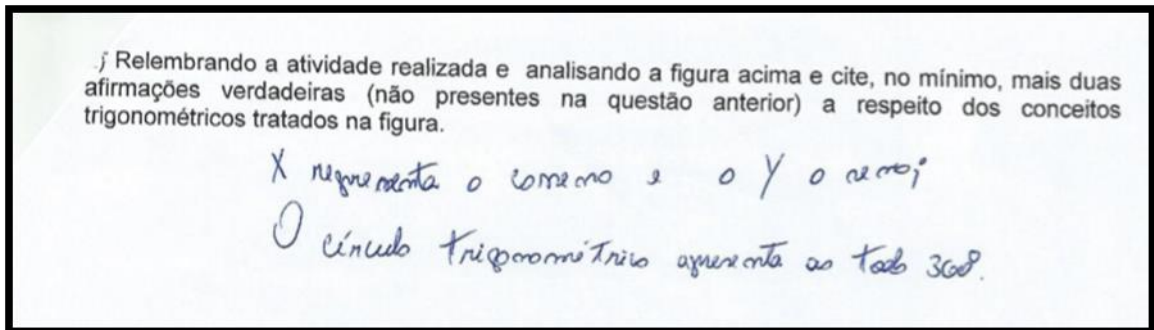 j Relembrando a atividade realizada e analisando a figura acima e cite, no mínimo, mais duas
afirmações verdadeiras (não presentes na questão anterior) a respeito dos conceitos
trigonométricos tratados na figura.
X representa o cosseno e o Y o seno;
O círculo trigonométrico apresenta ao todo 360º.